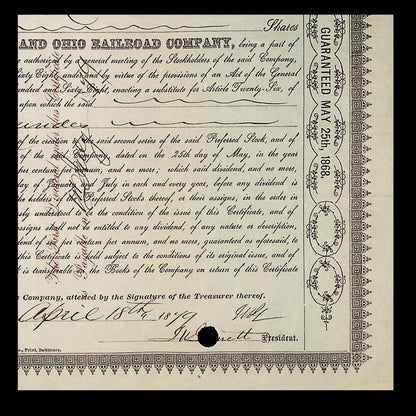 Shares
AND OHIO RAILROAD COMPANY, being a part of
authorized by a general meeting of the Stockholders of the said Company,
Sixty Eight, under and by virtue of the provisions of an Act of the General
hundred and Sixty Eight, enacting a substitute for Article Twenty-Six, of
upon which the said
of the creation of the said second series of the said Preferred Stock, and of
of the Company dated on the 25th day of May, in the year
per centum annum, and no more; which said dividend, and no more,
day of January July in each and every year, before any dividend
holders of the Preferred Stocks thereof, or their assigns, in the order in
understood to be the condition of the issue of this Certificate, and of
assigns shall not be entitled to any dividend, of any nature or description,
dend of per centum per annum, and no more, guaranteed as aforesaid, to
this Certificate is sold subject to the conditions of its original issue, and of
it is transferable on the Books of the Company on return of this Certificate
Company, attested by the Signature of the Treasurer thereof.
April 18th 1879
President.
Co., Print, Baltimore.
GUARANTEED MAY 25th, 1868.